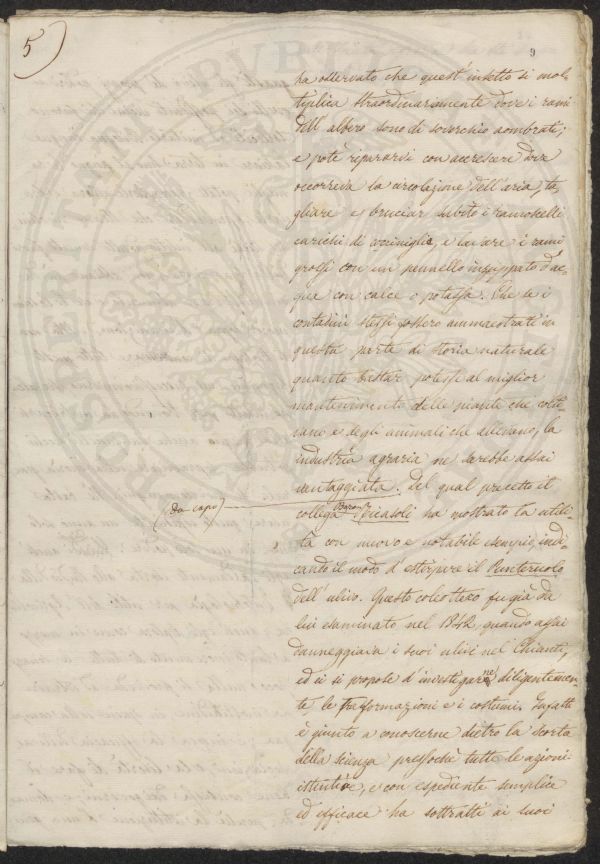 5)
9
ha osservato che quest'insetto si mol-
tiplica straordinariamente dove i rami
dell'albero sono di soverchio aombrati;
e potè ripararvi con accrescere dove
occorreva la circolazione dell'aria, ta
gliare e bruciar subito i ramoscelli
carichi di cocciniglia, e lavare i rami
grossi con un pennello inzuppato d'ac
qua con calce o potassa. Che se i
contadini stessi fossero ammaestrati in
questa parte di storia naturale
quanto bastar potesse al miglior
mantenimento delle piante che colti-
vano e degli animali che allevano, la
industria agraria ne sarebbe assai
vantaggiata. Del qual precetto il
(da capo)
collega Baron Ricasoli ha mostrato la utili-
tà con nuovo e notabile esempio, indi-
cando il modo d'estirpare il Punteruolo
dell'ulivo. Questo coleottero fu già da
lui esaminato nel 1842, quando assai
danneggiava i suoi ulivi nel Chianti,
ed ei si propose d'investigarne diligentemen-
te, le trasformazioni e i costumi. Infatti
è giunto a conoscerne dietro la scorta
della scienza pressochè tutte le azioni
istintive, e con espediente semplice
ed efficace ha sottratti ai suoi